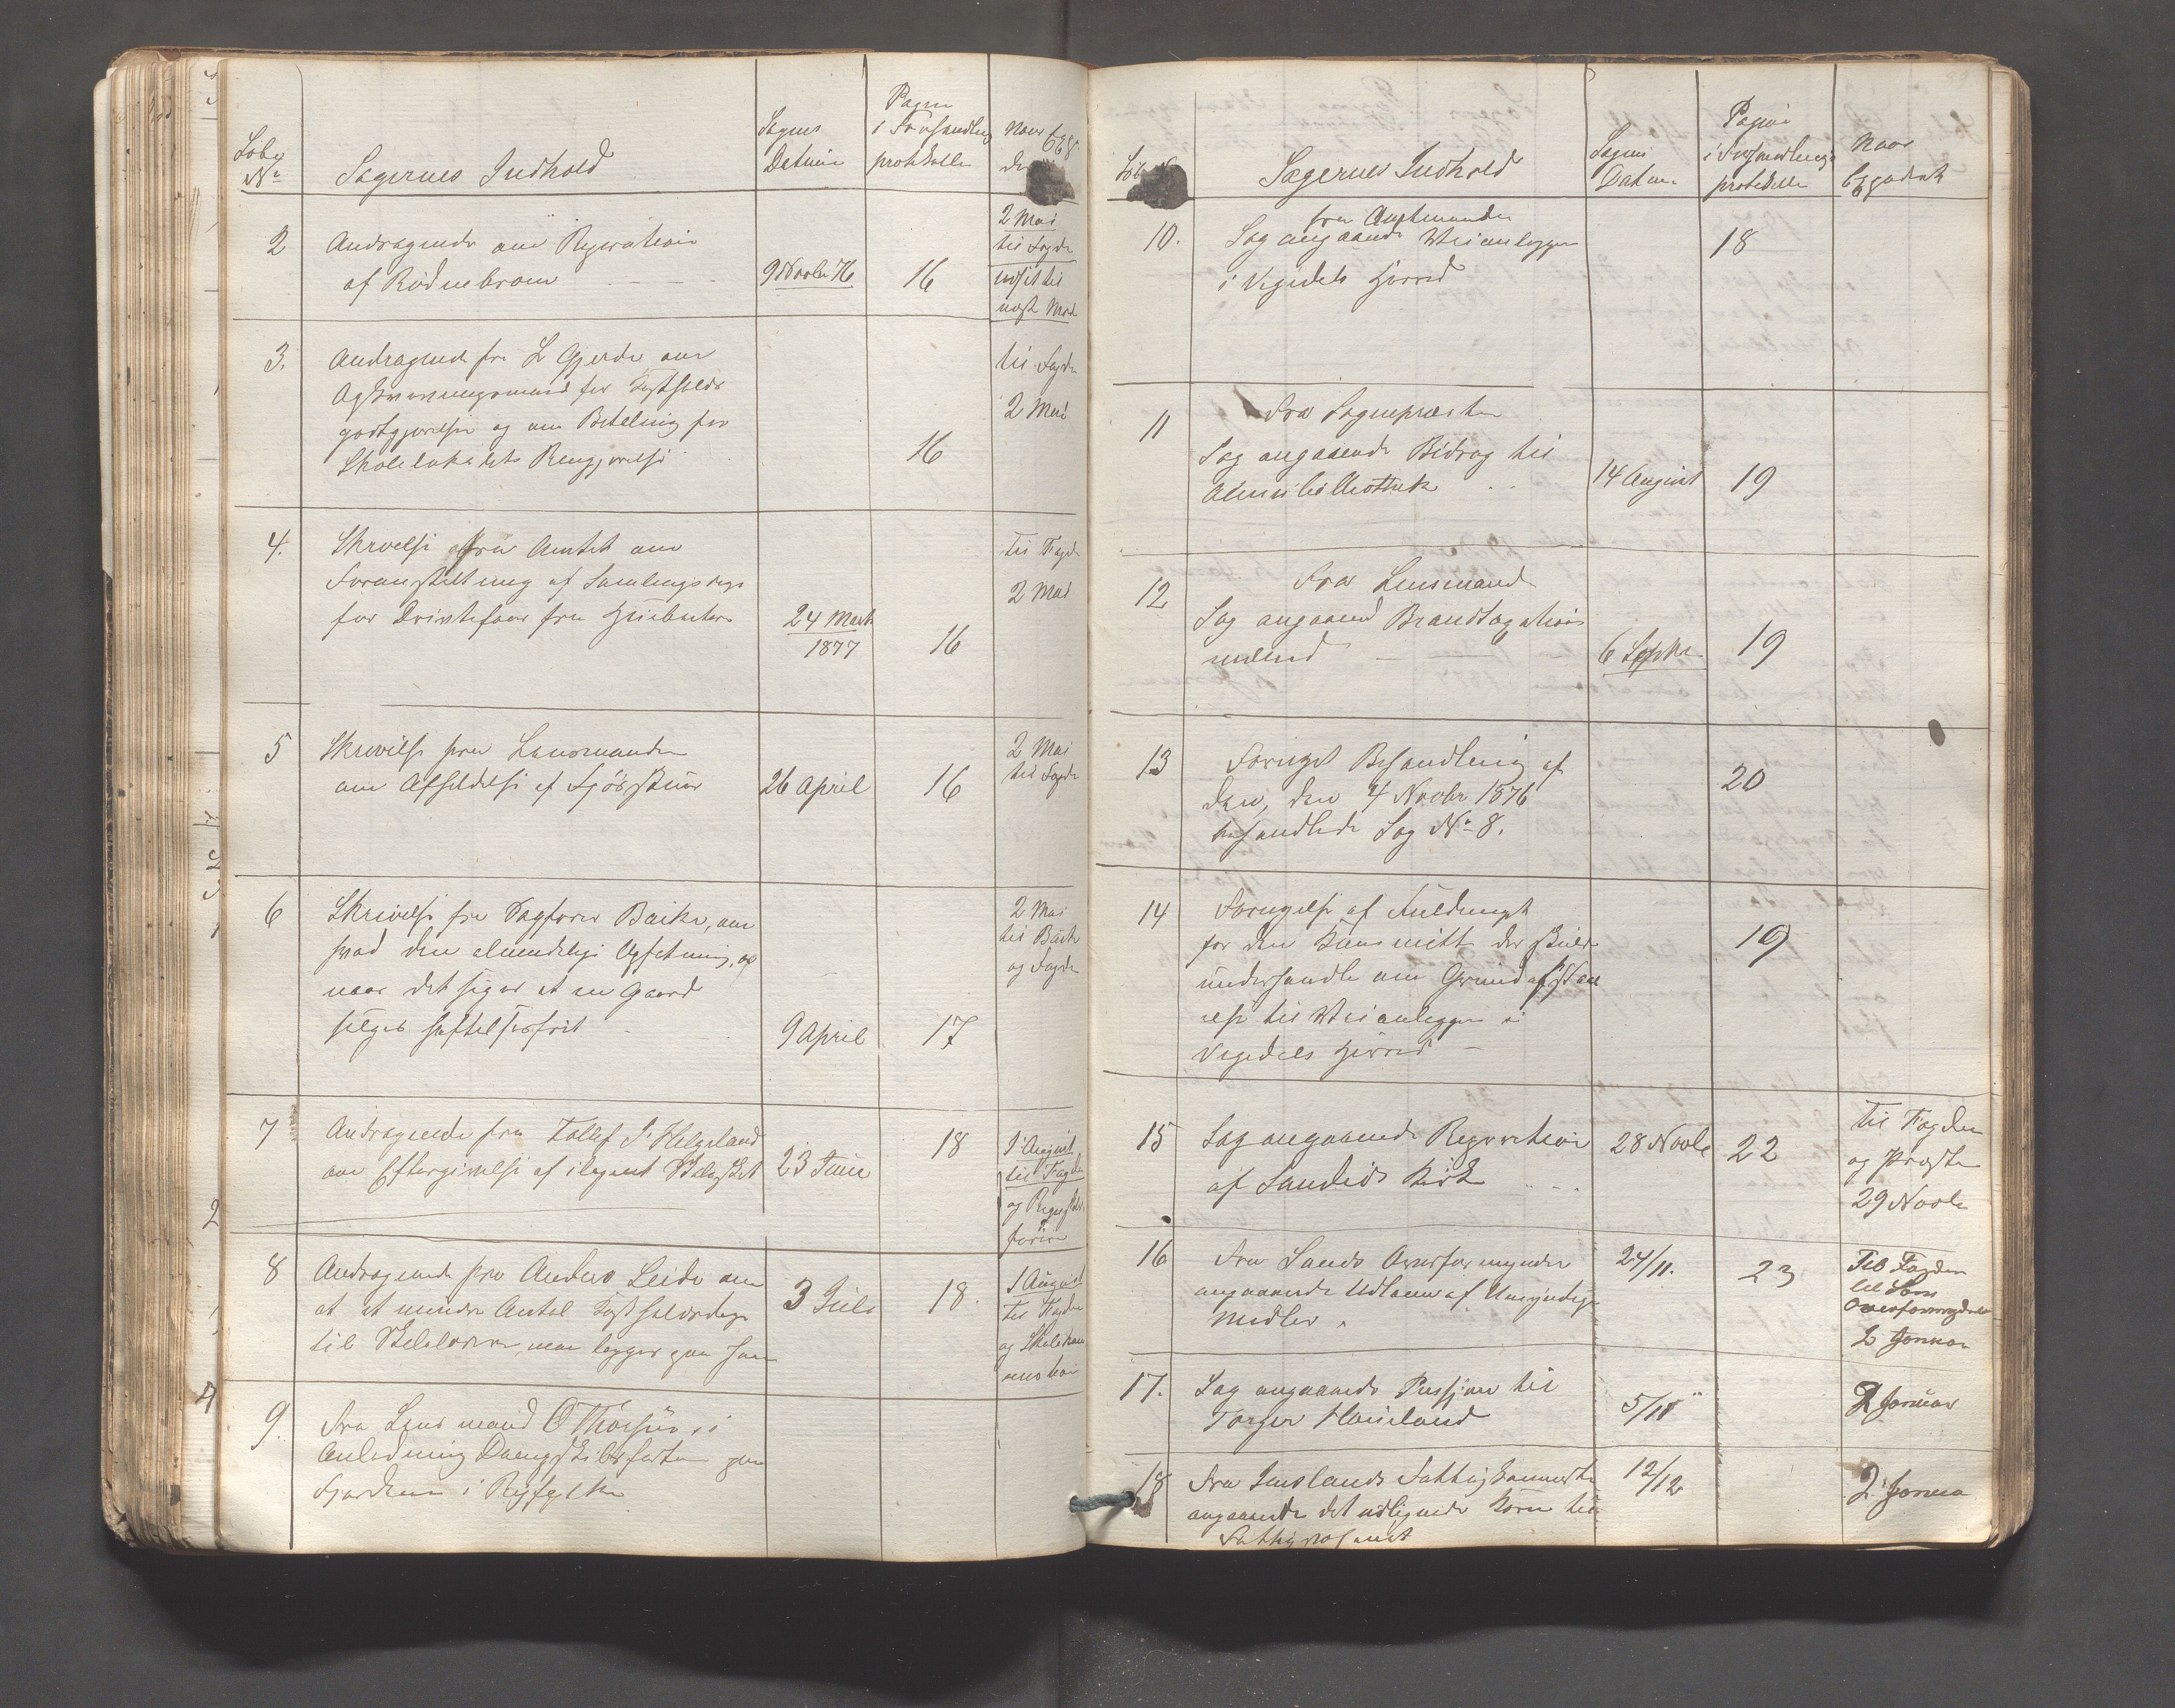 Løbe
No
Sagernes Indhold
Sagens
Datum
Pagina
i Forhandlings
protokollen
Naar Exp
2
Andragende om Reperation
af Rødnebroen
9 Novbr 76
16
2 Mai
til Fogden
udsat til
næste Møde
3.
Andragende fra L Gjerde om
for Kostholds
godtgjørelse og om Betaling for
Skolelokalets Rengjørelse
16
til Fogden
2 Mai
4.
Skrivelse fra Amtet om
Foranstaltning af Samlingsdage
for Driftefaar fra
24 Marts
1877
16
til Fogden
2 Mai
5
Skrivelse fra Lensmanden
om Afholdelse af
26 April
16
2 Mai
til Fogden
6
Skrivelse fra Sagfører om
hvad den almindelige Opfatning, er
naar det siges at en Gaard
sælges heftelsesfrit
9 April
17
2 Mai
til
og Fogden
7
Andragende fra Tollef Helgeland
om Eftergivelse af ilignet Skoleskat
23 Juni
18
1 August
til Fogden
og Regnskabs
føreren
8
Andragende fra Anders Leide om
at et mindre Antal Kostholdsdage
til Skolelæreren, man lægges paa ham
3 Juli
18.
1 August
til Fogden
og Skolekom
9.
Fra Lensmand O Thorsen, i
Anledning Dampskibsfarten paa
Fjordene i Ryfylke
Sagernes Indhold
Sagens
Datum
Pagina
i Forhandlings
protokollen
Naar
Expederet
10.
fra Amtmanden
Sag angaaende Veianlægget
i Vigedals Herred
18
11
Fra Sognepræsten
Sag angaaende Bidrag til
Almuebibliothek
14 August
19
12
Fra Lensmand
Sag angaaende Brandtaxations
mænd
6 Septbr
19
13
Fornyet Behandling af
den, den 4 Novbr 1876
behandlede Sag No 8.
20
14
Fornyelse af Fuldmagt
for den Kommitte der skulde
underhandle om Grundafstaa
else til Veianlægget i
Vigedals Herred
19
15
Sag angaaende Reperation
af Sandeids Kirke
28 Novbr
22
til Fogden
og Præsten
29 Novbr
16
Fra Sands Overformynder
angaaende Udlaan af Umyndiges
Midler.
24/11.
23
Til Fogden
til
Overformynderen
2 Januar
17.
Sag angaaende Pension til
Torger
5/11
2 Januar
18
Fra Imslands Fattigkommission
angaaende det udlignede Korn til
Fattigvæsenet
12/12
2 Januar